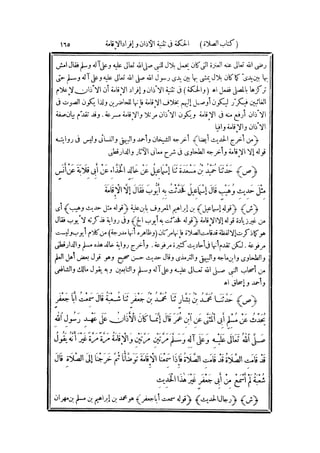 ﴿كتاب الصلاة﴾ الحكمة فى تثنية الأذان وإفراد الإقامة ١٦٥
رضى الله تعالى عنه العنزة التى كان يحمل بلال للنبى صلى الله تعالى عليه وعلى آله وسلم فقال امش
بها بين يدى كما كان بلال يمشى بها بين يدى رسول الله صلى الله تعالى عليه وعلى آله وسلم حتى
تركها بالمصلى ففعل اه ﴿والحكمة﴾ فى تثنية الأذان وإفراد الإقامة أن الأذان لإعلام
الغائبين فيكرر ليكون أوصل إليهم بخلاف الإقامة فإنها للحاضرين ولذا يكون الصوت فى
الأذان أرفع منه فى الإقامة ويكون الأذان مرتلا والإقامة مسرعة. وقد تقدم بيان صفة
الأذان والإقامة وافيا
﴿من أخرج الحديث أيضا﴾ أخرجه الشيخان وأحمد والبيهقى والنسائى وليس فى روايته
قوله إلا الإقامة وأخرجه الطحاوى فى شرح معانى الآثار والدارقطنى
﴿ص﴾ حَدَّثَنَا حُمَيْدُ بْنُ مَسْعَدَةَ ثَنَا إِسْمَاعِيلُ عَنْ خَالِدٍ الْحَذَّاءِ عَنْ أَبِي قِلَابَةَ عَنْ أَنَسٍ
مِثْلَ حَدِيثِ وُهَيْبٍ قَالَ إِسْمَاعِيلُ فَحَدَّثْتُ بِهِ أَيُّوبَ فَقَالَ إِلَّا الْإِقَامَةَ
﴿ش﴾ ﴿قوله إسماعيل﴾ بن إبراهيم المعروف بابن علية ﴿قوله مثل حديث وهيب﴾ أى
من غير زيادة قوله إلا الإقامة ﴿قوله فحدثت به أيوب الخ﴾ وفى رواية فذكرته لأيوب فقال
هو كما ذكرت إلا لفظة قد قامت الصلاة فإنها مرتان ﴿وظاهره أنها مدرجة﴾ من كلام أيوب وليست
مرفوعة. لكن تقدم أنها فى أحاديث كثيرة مرفوعة. وأخرج رواية خالد هذه مسلم والدارقطنى
والطحاوى وابن ماجه والبيهقى والترمذى وقال حديث حسن صحيح وهو قول بعض أهل العلم
من أصحاب النبى صلى الله تعالى عليه وعلى آله وسلم والتابعين وبه يقول مالك والشافعى
وأحمد وإسحاق اه
﴿ص﴾ حَدَّثَنَا مُحَمَّدُ بْنُ بَشَّارٍ ثَنَا مُحَمَّدُ بْنُ جَعْفَرٍ ثَنَا شُعْبَةُ قَالَ سَمِعْتُ أَبَا جَعْفَرٍ
يُحَدِّثُ عَنْ مُسْلِمٍ أَبِي الْمُثَنَّى عَنِ ابْنِ عُمَرَ قَالَ إِنَّمَا كَانَ الْأَذَانُ عَلَى عَهْدِ رَسُولِ اللَّهِ
صَلَّى اللَّهُ تَعَالَى عَلَيْهِ وَعَلَى آلِهِ وَسَلَّمَ مَرَّتَيْنِ مَرَّتَيْنِ وَالْإِقَامَةُ مَرَّةً مَرَّةً غَيْرَ أَنَّهُ يَقُولُ
قَدْ قَامَتِ الصَّلَاةُ قَدْ قَامَتِ الصَّلَاةُ فَإِذَا سَمِعْنَا الْإِقَامَةَ تَوَضَّأْنَا ثُمَّ خَرَجْنَا إِلَى الصَّلَاةِ قَالَ
شُعْبَةُ لَمْ أَسْمَعْ مِنْ أَبِي جَعْفَرٍ غَيْرَ هَذَا الْحَدِيثِ
﴿ش﴾ ﴿رجال الحديث﴾ ﴿قوله سمعت أبا جعفر﴾ هو محمد بن إبراهيم بن مسلم بن مهران